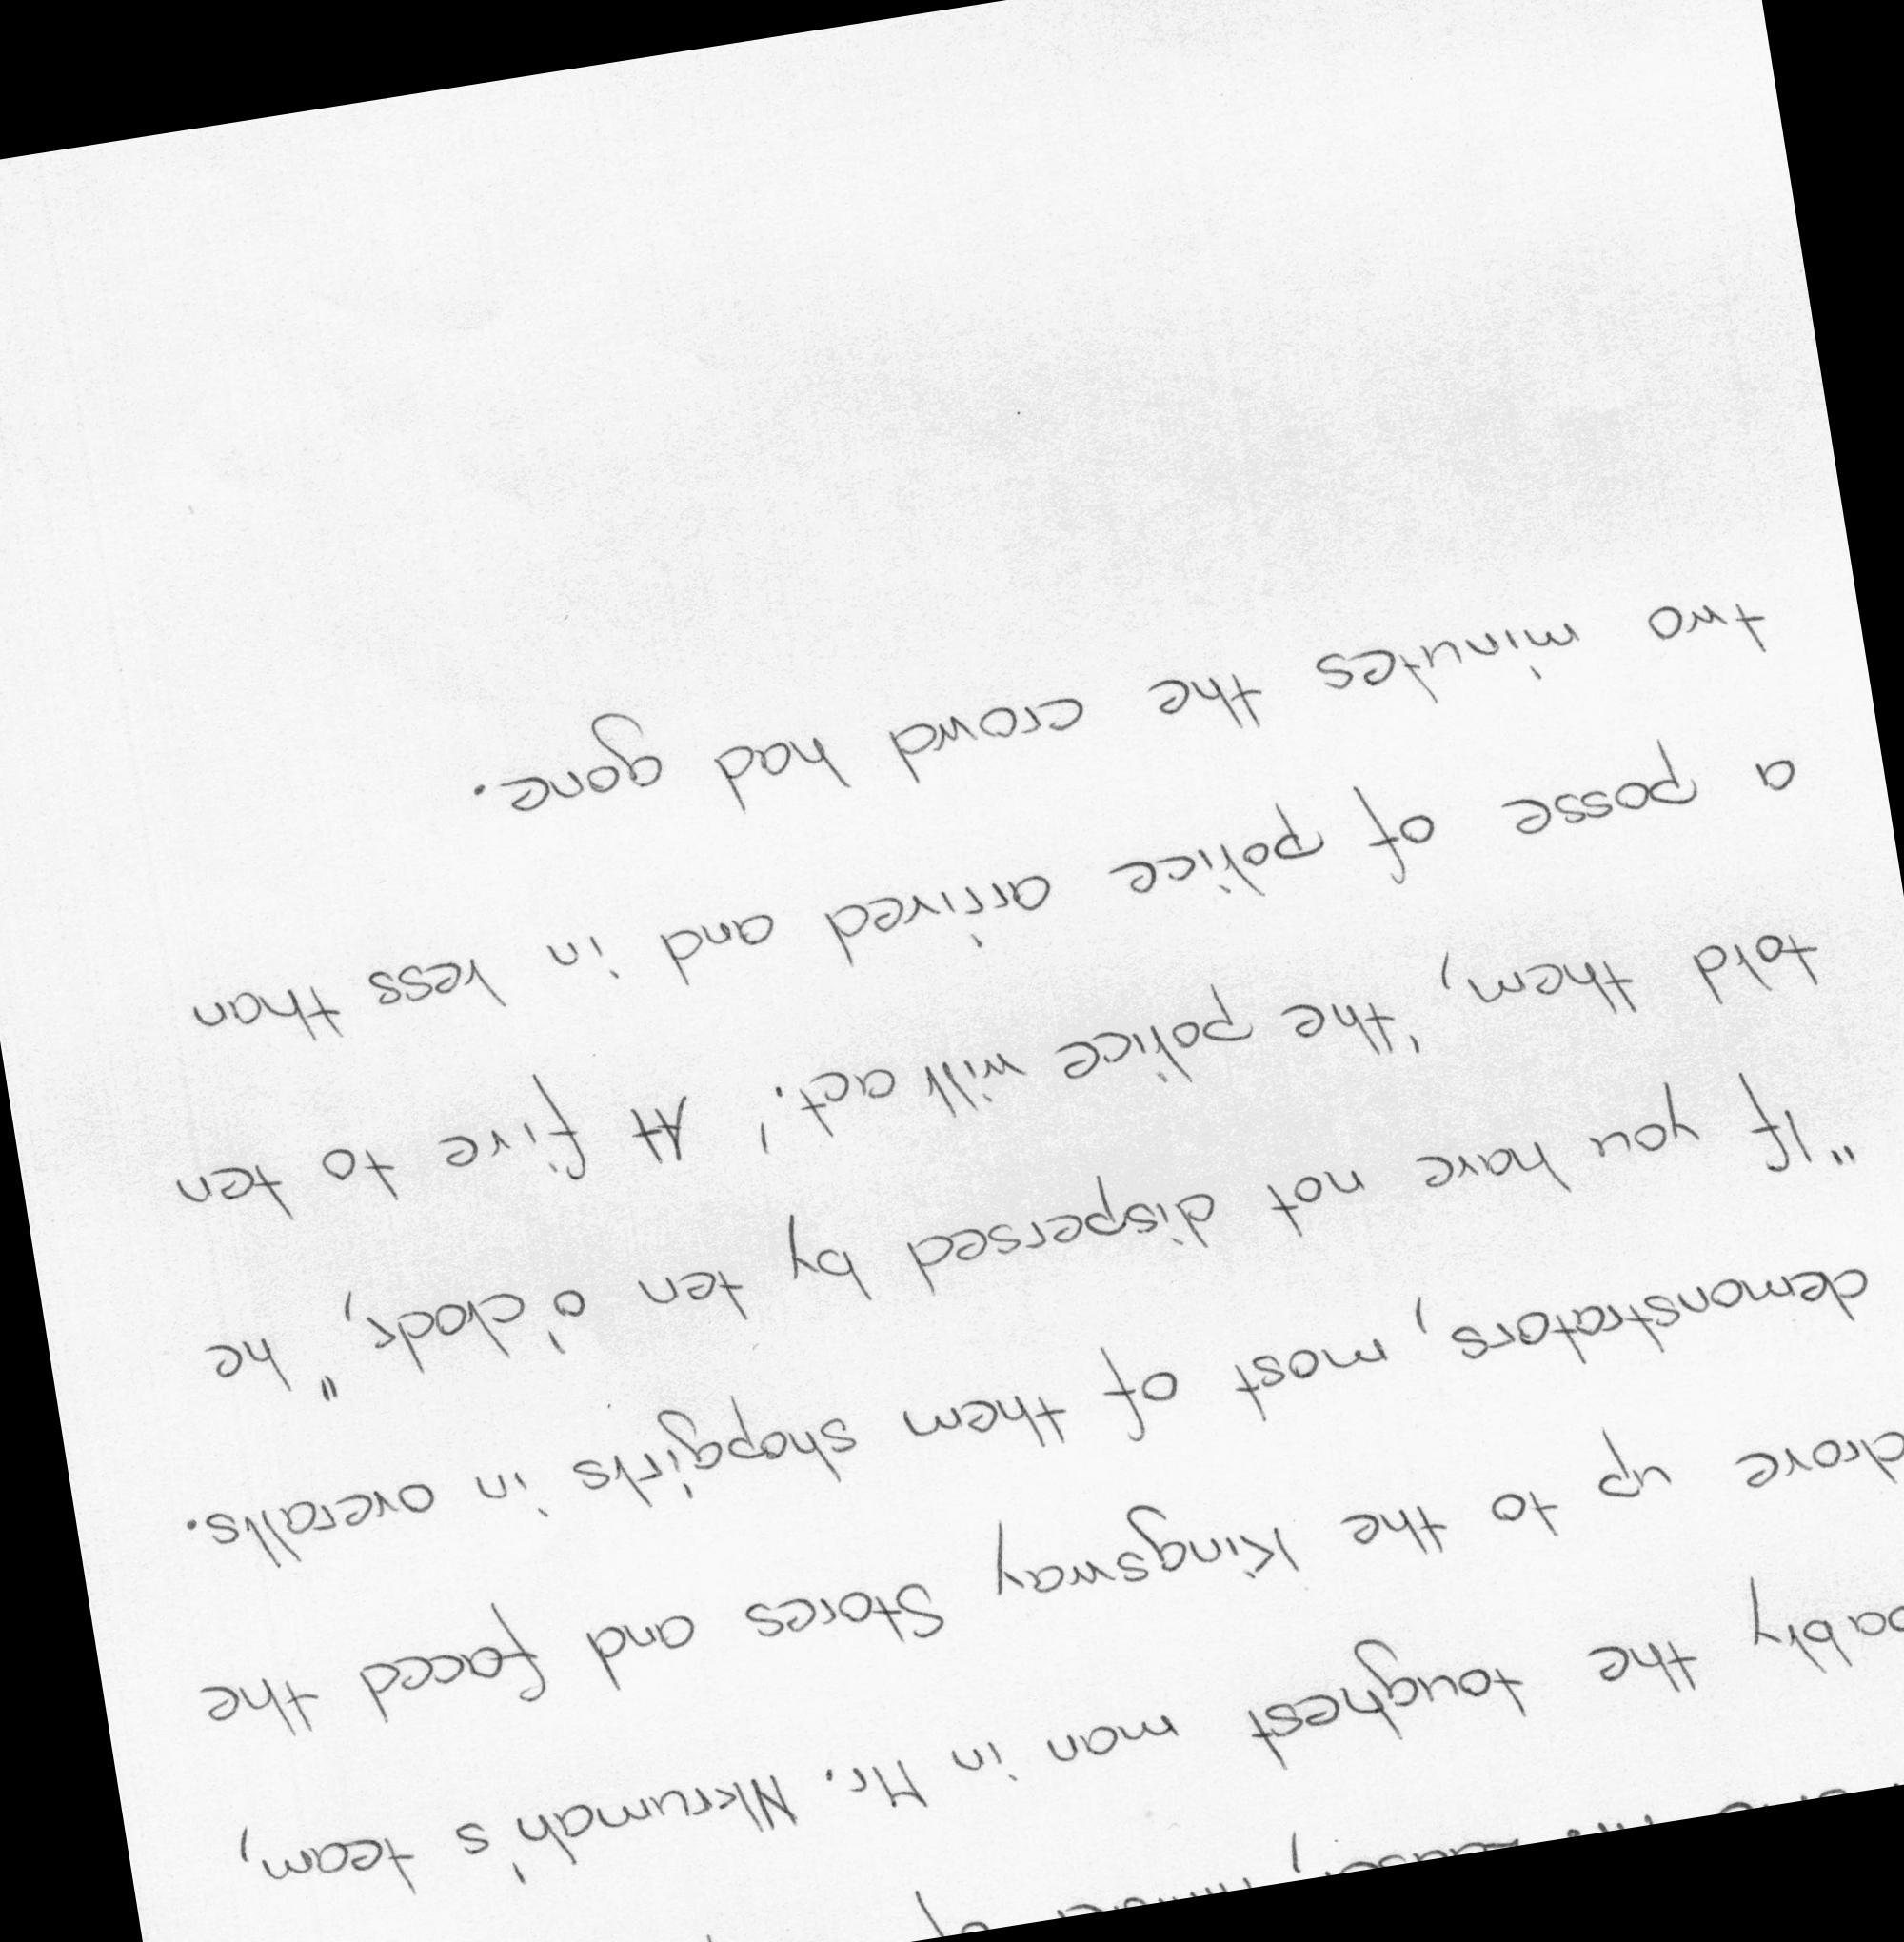 the toughest man in Mr. Nkrumah's team,
drove up to the Kingsway Stores and faced the
demonstrators, most of them shopgirls in overalls.
"If you have not dispersed by ten o'clock," he
told them, 'the police will act.' At five to ten
a posse of police arrived and in less than
two minutes the crowd had gone.